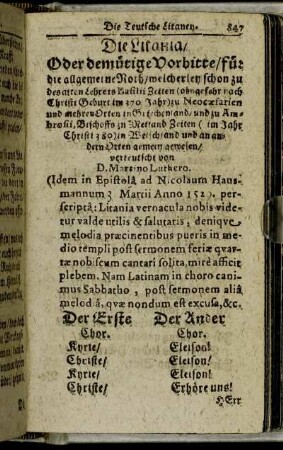 Die Teutsche Litaney. 847
Die Litania/
Oder demütige Vorbitte/für
die allgemeine Noth/welcherley schon zu
des alten Lehrers Basilii Zeiten (ohngefähr nach
Christi Geburt im 370 Jahr) zu Neocæsarien
und mehren Orten in Griechenland/ und zu Am-
brosii, Bischoffs zu Meiland Zeiten ( im Jahr
Christi 380) in Welschland und an an-
dern Orten gemein gewesen/
verteutscht von
D. Martino Luthero.
(Idem in Epistolâ ad Nicolaum Haus-
mannum 3 Martii Anno 1529. per-
scriptâ: Litania vernacula nobis vide-
tur valde utilis & salutaris , deniqve
melodia præcinentibus pueris in me-
dio templi post sermonem feriæ quar-
tæ nobiscum cantari solita, mirè afficit
plebem. Nam Latinam in choro cani-
mus Sabbatho , post sermonem aliâ
melodiâ, qvæ nondum est excusa, &c.
Der Erste Der Ander
Chor. Chor.
Kyrie/ Eleison!
Christe/ Eleison!
Kyrie/ Eleison!
Christe/ Erhöre uns!
HErr